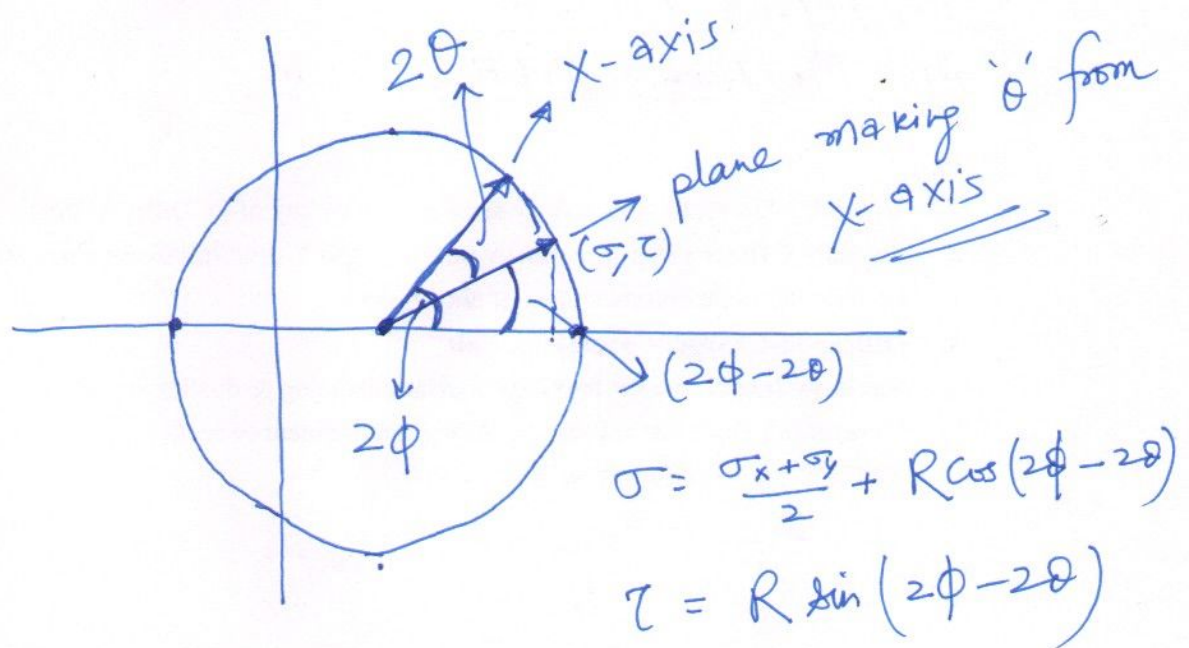 2θ
X-axis
plane making 'θ' from
X-axis
(σ, τ)
(2ϕ-2θ)
2ϕ
σ = σx+σy/2 + R cos(2ϕ-2θ)
τ = R sin(2ϕ-2θ)